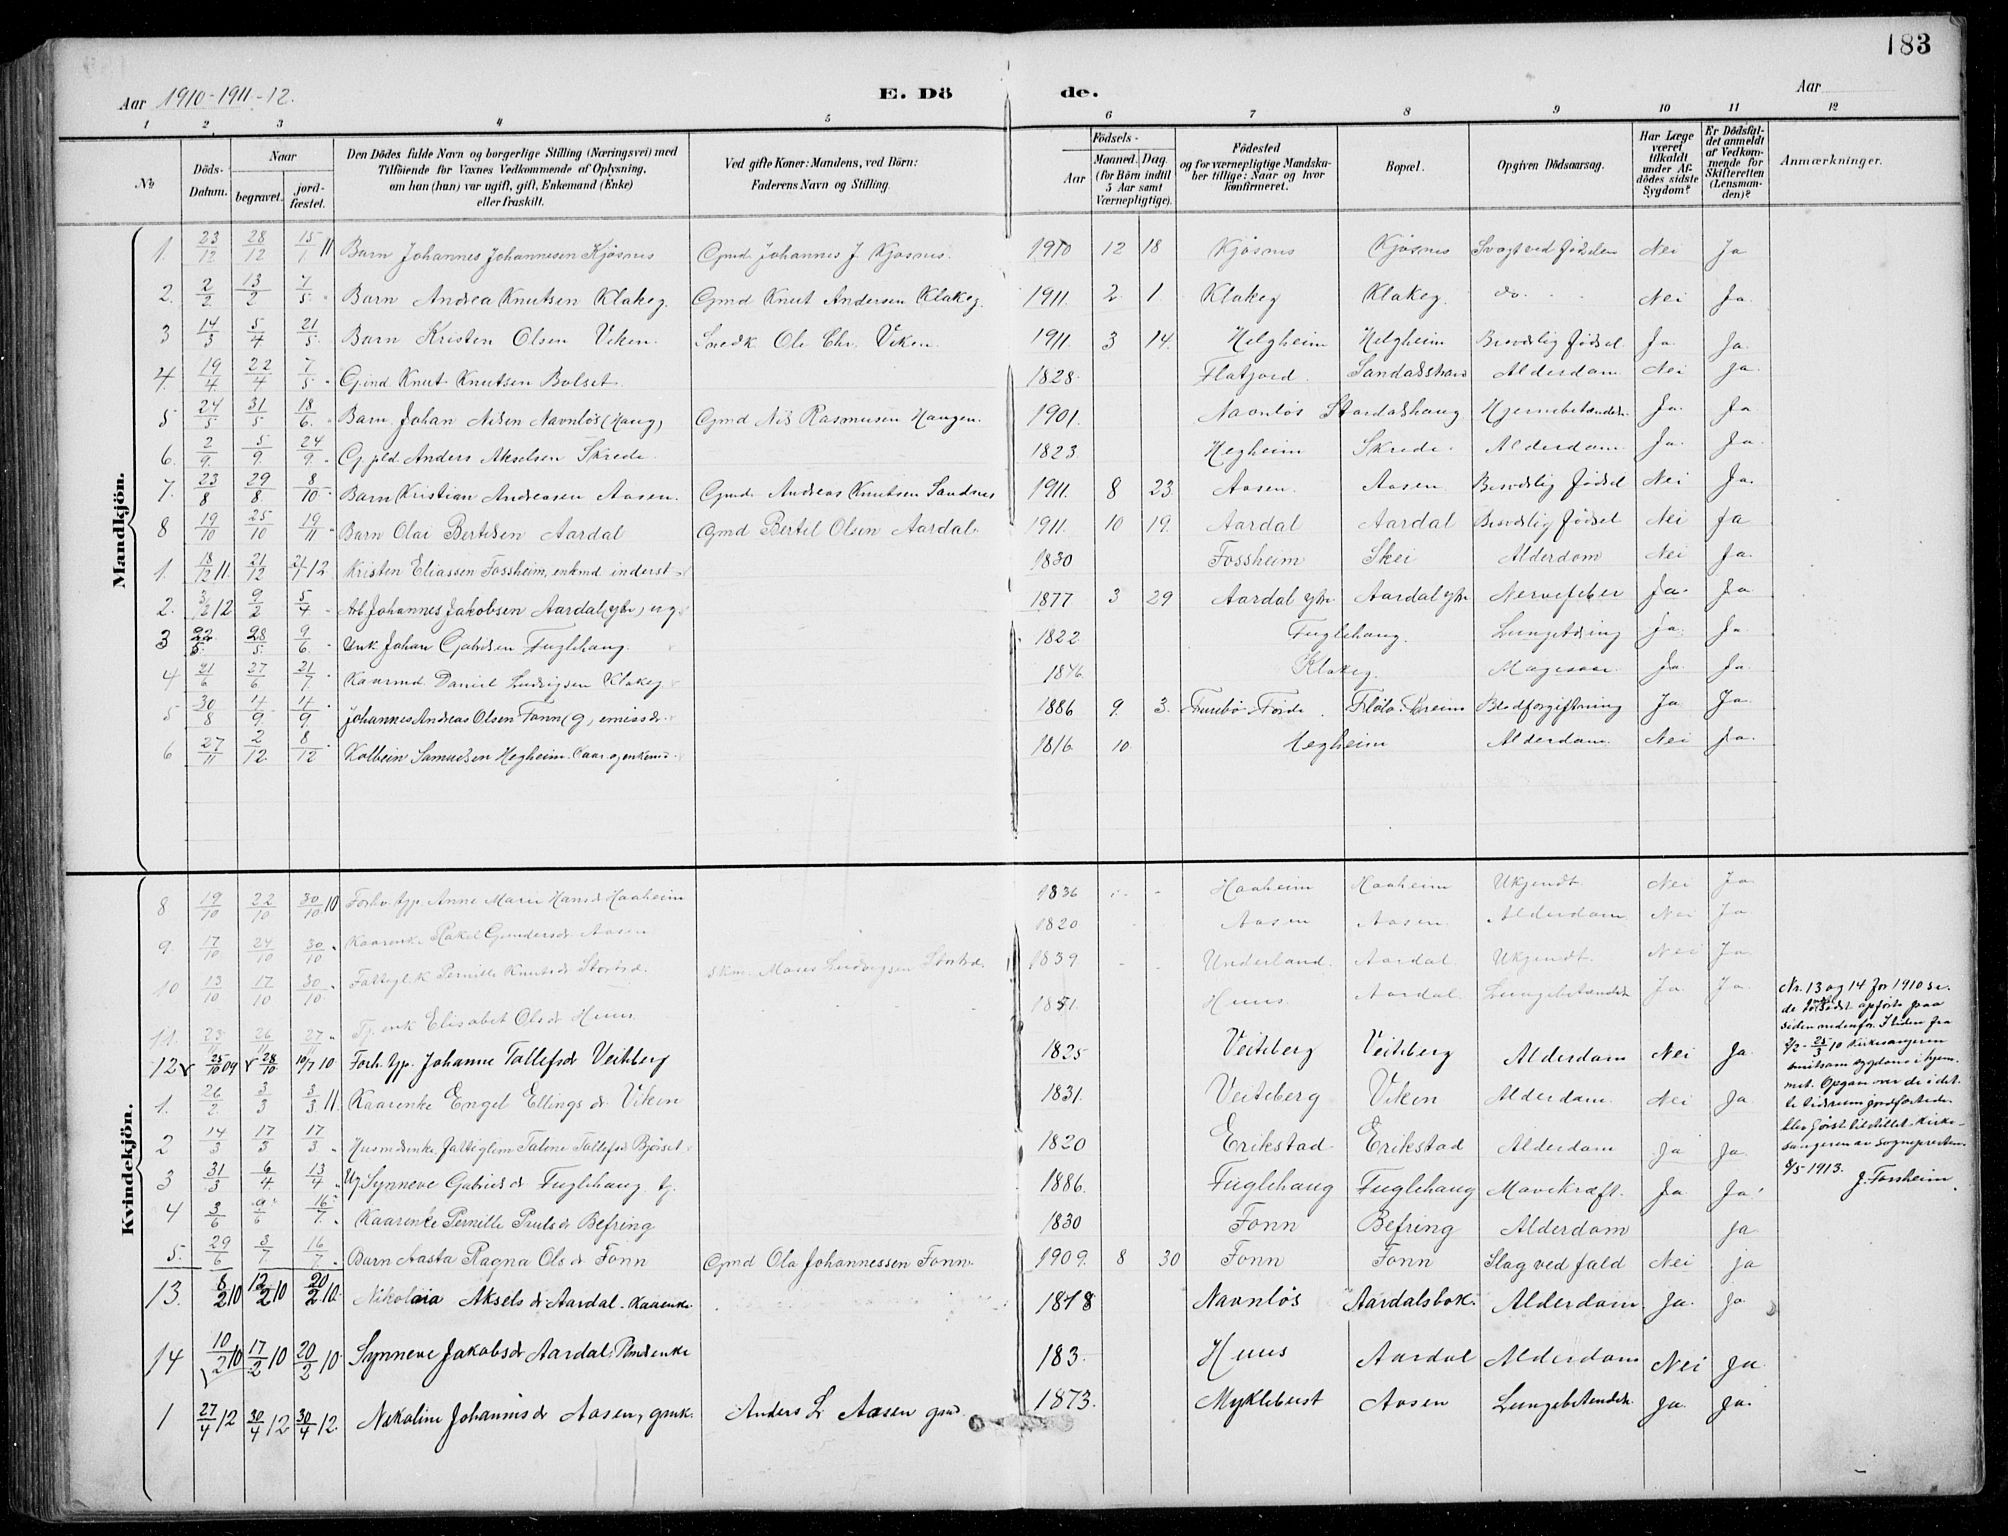 183
Aar 1910-1911-12. E. Dö de. Aar
1 2 3 4 5 6 7 8 9 10 11 12
№ Döds-Datum. Naar begravet. jordfæstet. Den Dödes fulde Navn og borgerlige Stilling (Næringsvei) med Tilföiende for Voxnes Vedkommende af Oplysning, om han (hun) var ugift, gift, Enkemand (Enke) eller fraskilt. Ved gifte Koner: Mandens, ved Börn: Faderens Navn og Stilling. Födsels- Aar Maaned. Dag. (for Börn indtil 5 Aar samt Værnepligtige). Födested og for værnepligtige Mandskaber tillige: Naar og hvor konfirmeret. Bopæl. Opgiven Dödsaarsag. Har Læge været tilkaldt under Afdödes sidste Sygdom? Er Dödsfaldet anmeldt af Vedkommende for Skifteretten (Lensmanden)? Anmærkninger.
Mandkjön.
1. 23/12 28/12 15/1 11 Barn Johannes Johannesen Kjösnes Gmd. Johannes J. Kjösnes. 1910 12 18 Kjösnes Kjösnes Svagt ved födselen Nei Ja
2. 2/2 13/2 7/5 Barn Andrea Knutsen Klakeg. Gmd Knut Andersen Klakeg. 1911. 2 1 Klakeg Klakeg. do. Nei Ja.
3 14/3 5/4 21/5 Barn Kristen Olsen Viken. Snedk. Ole Chr. Viken. 1911. 3 14. Helgheim Helgheim Besværlig födsel Ja. Ja.
4. 19/4 22/4 7/5 Gmd Knut Knutsen Bolset. 1828. Flatjord. Alderdom Nei Ja.
5 24/5 31/5 18/6. Barn Johan Nilsen Navnlös (Haug) Gmd Nils Rasmusen Haugen. 1901. Navnlös Stardalshaug Hjernebetændels. Ja. Ja.
6. 2/9. 5/9. 24/9. Anders Akselsen Skrede. 1823. Hegheim Skrede. Alderdom. Ja. Ja.
7. 23/8 29/8. 8/10. Barn Kristian Andreasen Aasen. Gmd. Andreas Knutsen Sandnes 1911. 8 23. Aasen. Aasen. Besværlig födsel Nei Ja.
8 19/10 25/10 19/11 Barn Olai Bertelsen Aardal Gmd Bertel Olsen Aardal. 1911. 10 19. Aardal Aardal Besværlig födsel Nei Ja
1. 18/12 11. 21/12 21/1 12 Kristen Eliassen Fossheim, enkmd inderst 1830 Fossheim Skei Alderdom Nei Ja.
2. 3/2 12 9/2 5/4 Arb. Johannes Jakobsen Aardal (ytre), ug. 1877 3 29 Aardal ytre Aardal ytre Nervefeber Ja. Ja
3 22/5. 28/5. 9/6. Enk. Johan Gabrielsen Fuglehaug. 1822 Fuglehaug. Lungetæring Ja. Ja.
4 21/6 27/6 21/7 Kaarmd. Daniel Ludvigsen Klakeg. 1846. Klakeg. Mavesaar. Ja. Ja
5 30/8 4/9. 4/9. Johannes Andreas Olsen Fonn (g, emissær. 1886 9. 3. Furebö - Förde. Blodforgiftning Ja Ja.
6 27/11 2/12. 8/12 Kolbein Samuelsen Hegheim. Kaar og enkemd. 1816 10. Hegheim Alderdom. Nei Ja.
Kvindekjön.
8 19/10 22/10 30/10 10 Forhv. typ. Anne Marie Hansdr Haaheim 1836 Haaheim Haaheim Ukjendt Nei Ja
9. 17/10 24/10 30/10 Kaarenke Rakel Gundersdr Aasen 1820 Aasen Aasen. Alderdom Nei Ja
10 13/10. 17/10 30/10. Fattigl. K Pernille Knutsdr Moses Ludvigsen 1839 Underland. Aardal. Ukjendt. Nei Ja.
11. 23/11 26/11 27/11 Tj. enk Elisabet Olsdr Huus 1851. Huus Aardal. Lungebetændels. Ja Ja.
12 25/10 09 28/10. 10/7 10 Forh. typ. Johanne Tollefsdr Veiteberg 1825 Veiteberg Veiteberg Alderdom Nei Ja.
1. 26/2. 3/3 3/3 11. Kaarenke Engel Ellingsdr Viken 1831. Veiteberg Viken Alderdom. Nei Ja.
2 14/3 17/3 17/3 Husmdsenke, fattiglem Talene Tollefsdr Björset 1820 Erikstad Erikstad Alderdom Ja Ja.
3 31/3 6/4 13/4 Ug Synneve Gabrielsdr Fuglehaug. tj. 1886. Fuglehaug Fuglehaug Mavekræft. Ja Ja.
4 3/6 9/6 16/7. Kaarenke Pernille Paulsdr Befring 1830 Fonn Befring Alderdom ja
5. 29/6 3/7 16/7. Barn Aasta Ragna Olsdr Fonn Gmd Ola Johannessen Fonn. 1909. 8 30 Fonn Fonn Slag ved fald Nei ja
13. 8/2 10 12/2 10 20/2 10. Nikolaia Akselsdr Aardal. Kaarenke. 1818 Navnlös Aardalsbok. Alderdom. Ja. ja
14 10/2 10 17/2 10 20/2 10. Synneve Jakobsdr Aardal. enke 183. Huus Aardal Alderdom Nei Ja.
1 27/4 12 30/4 12 30/4 12. Nikoline Johannesdr Aasen, gmk. Anders L Aasen gmd. 1873. Myklebust Aasen Lungebetændels. Ja. ja.
Nr. 13 og 14 for 1910 se.
opförte paa
siden nedenfor. I tiden fra
2/2 - 25/3 10 Kirkesangeren
smitsom sygdom i hjem-
met. Opgave over de i det-
te tidsrum jordfæstede
blev först tilstillet Kirke-
sangeren av sognepresten
8/5 1913.
J. Fossheim.